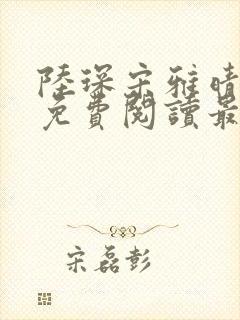 陸琛宋雅晴
免費閱讀最
宋磊彭